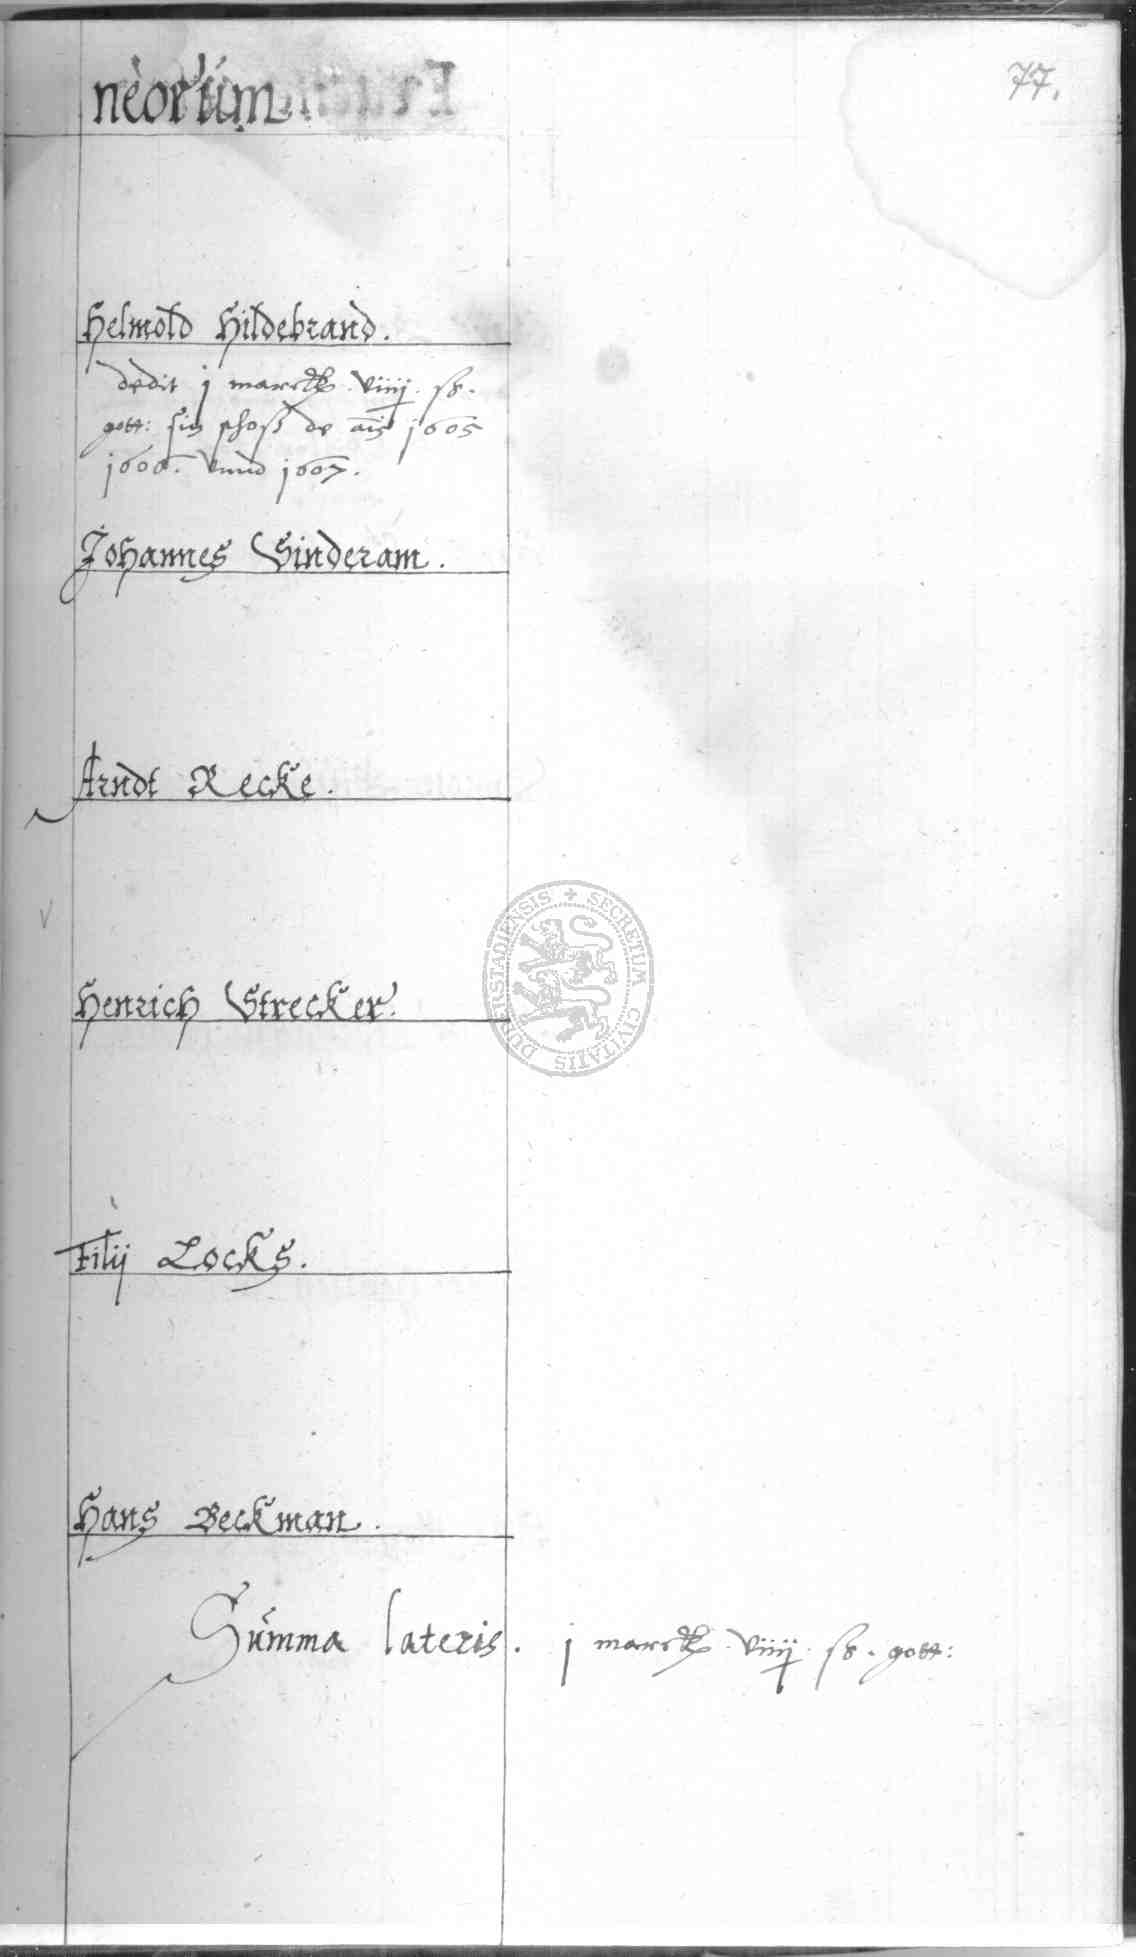 neorum
77.
Helmold Hildebrand.
dedit j marck viiij ß.
gott: sin schoß de ais 1605
1606. vnnd 1607.
Johannes Sinderam.
Arndt Recke.
Henrich Strecker.
Filij Locks.
Hans Beckman.
Summa lateris. j marck viiij ß. gott:
SECRETUM CIVITATIS DUDERSTADIENSIS